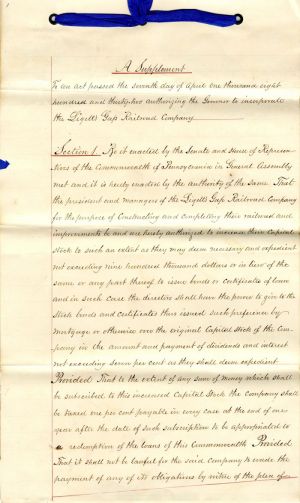 A Supplement
To an act passed the seventh day of April one thousand eight
hundred and thirtytwo authorizing the Governor to incorporate
the Ligetts Gap Railroad Company
Section 1. Be it enacted by the Senate and House of Represen
tives of the Commonwealth of Pennsylvania in General Assembly
met and it is hereby enacted by the authority of the same That
the president and managers of the Ligetts Gap Railroad Company
for the purpose of Constructing and completing their railroad and
improvements be and are hereby authorized to increase their Capital
Stock to such an extent as they may deem necessary and expedient
not exceeding nine hundred thousand dollars or in lieu of the
same or any part thereof to issue bonds or certificates of loan
and in such case the directors shall have the power to give to the
Stock bonds and certificates thus issued such preference by
mortgage or otherwise over the original Capital Stock of the Com
pany in the amount and payment of dividends and interest
not exceeding seven per cent as they shall deem expedient
Provided That to the extent of any sum of money which shall
be subscribed to this increased Capital Stock the Company shall
be taxed one per cent payable in every case at the end of one
year after the date of such subscription to be appropriated to
a redemption of the loans of this Commonwealth Provided
That it shall not be lawful for the said company to evade the
payment of any of its obligations by virtue of the plea of